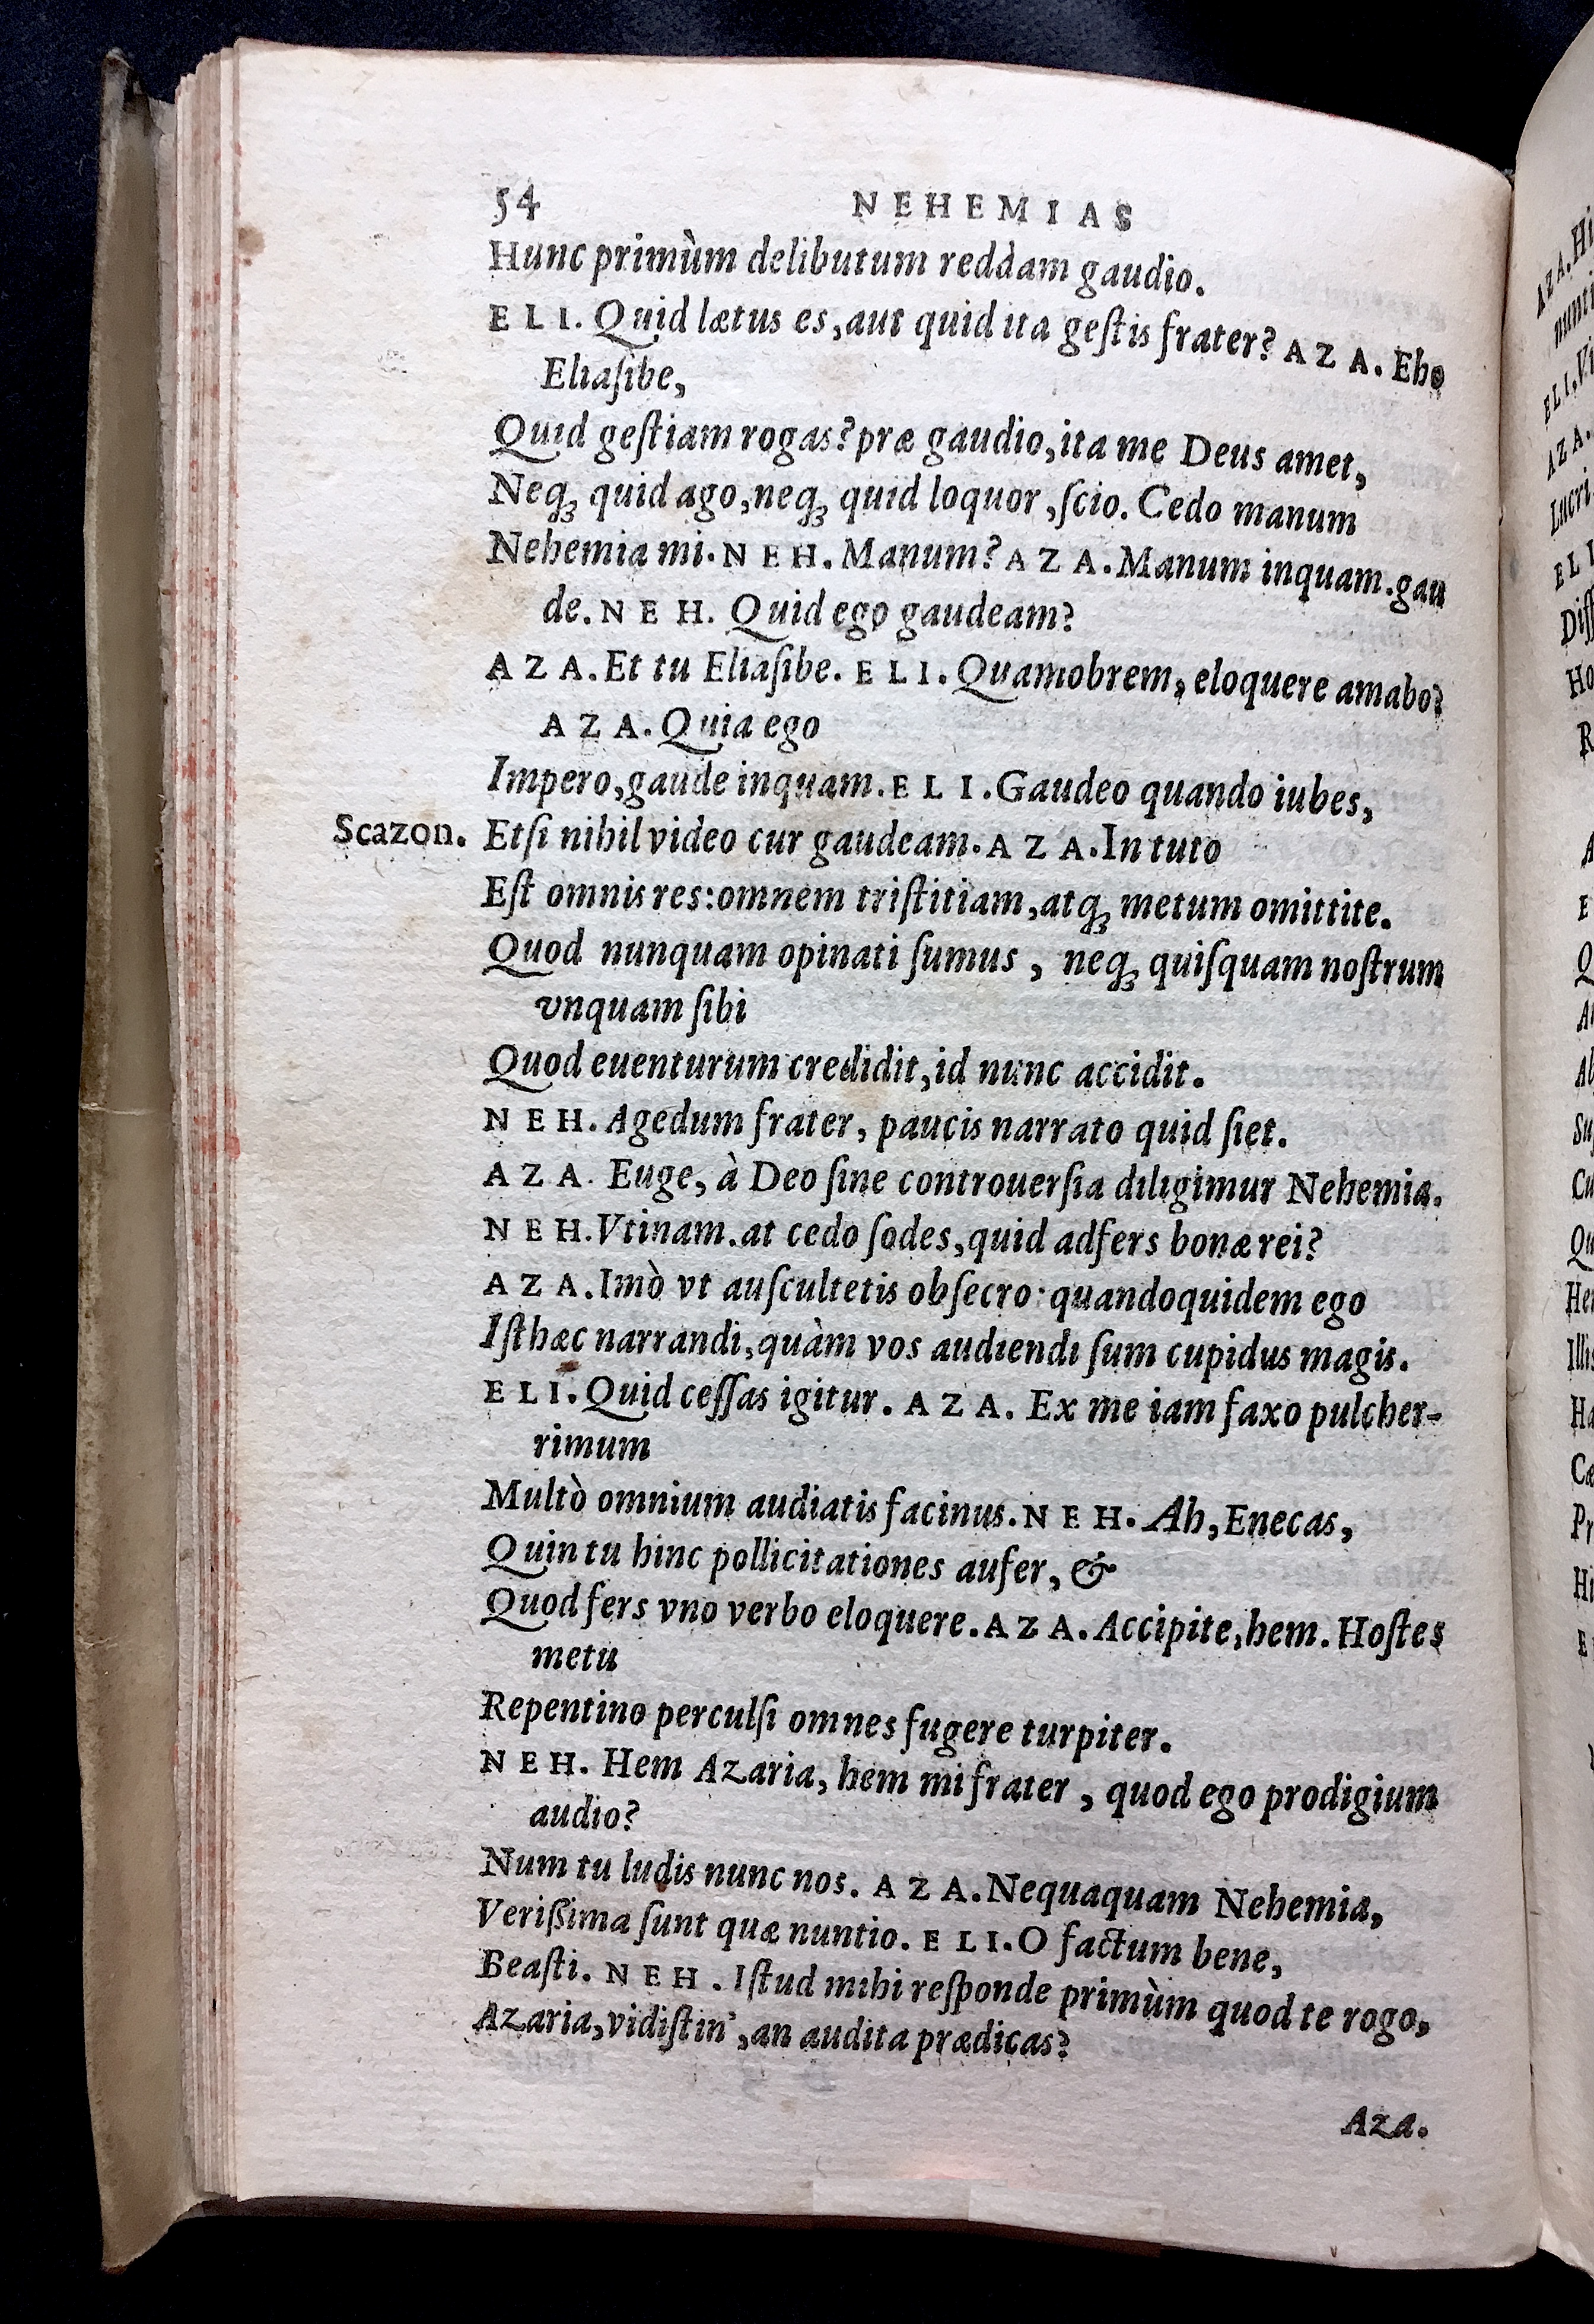 54 NEHEMIAS
Hunc primùm delibutum reddam gaudio.
ELI. Quid lætus es, aut quid ita geſtis frater? AZA. Eho
Eliaſibe,
Quid geſtiam rogas? præ gaudio, ita me Deus amet,
Neqꝫ quid ago, neqꝫ quid loquor, ſcio. Cedo manum
Nehemia mi. NEH. Manum? AZA. Manum inquam. gau
de. NEH. Quid ego gaudeam?
AZA. Et tu Eliaſibe. ELI. Quamobrem, eloquere amabo?
AZA. Quia ego
Impero, gaude inquam. ELI. Gaudeo quando iubes,
Scazon. Etſi nihil video cur gaudeam. AZA. In tuto
Eſt omnis res: omnem triſtitiam, atqꝫ metum omittite.
Quod nunquam opinati ſumus, neqꝫ quiſquam noſtrum
vnquam ſibi
Quod euenturum credidit, id nunc accidit.
NEH. Agedum frater, paucis narrato quid ſiet.
AZA. Euge, à Deo ſine controuerſia diligimur Nehemia.
NEH. Vtinam. at cedo ſodes, quid adfers bonæ rei?
AZA. Imò vt auſcultetis obſecro: quandoquidem ego
Iſthæc narrandi, quàm vos audiendi ſum cupidus magis.
ELI. Quid ceſſas igitur. AZA. Ex me iam faxo pulcher-
rimum
Multò omnium audiatis facinus. NEH. Ah, Enecas,
Quin tu hinc pollicitationes aufer, &
Quod fers vno verbo eloquere. AZA. Accipite, hem. Hoſtes
metu
Repentino perculſi omnes fugere turpiter.
NEH. Hem Azaria, hem mi frater, quod ego prodigium
audio?
Num tu ludis nunc nos. AZA. Nequaquam Nehemia,
Verißima ſunt quæ nuntio. ELI. O factum bene,
Beaſti. NEH. Iſtud mihi reſponde primùm quod te rogo,
Azaria, vidiſtin', an audita prædicas?
Aza.